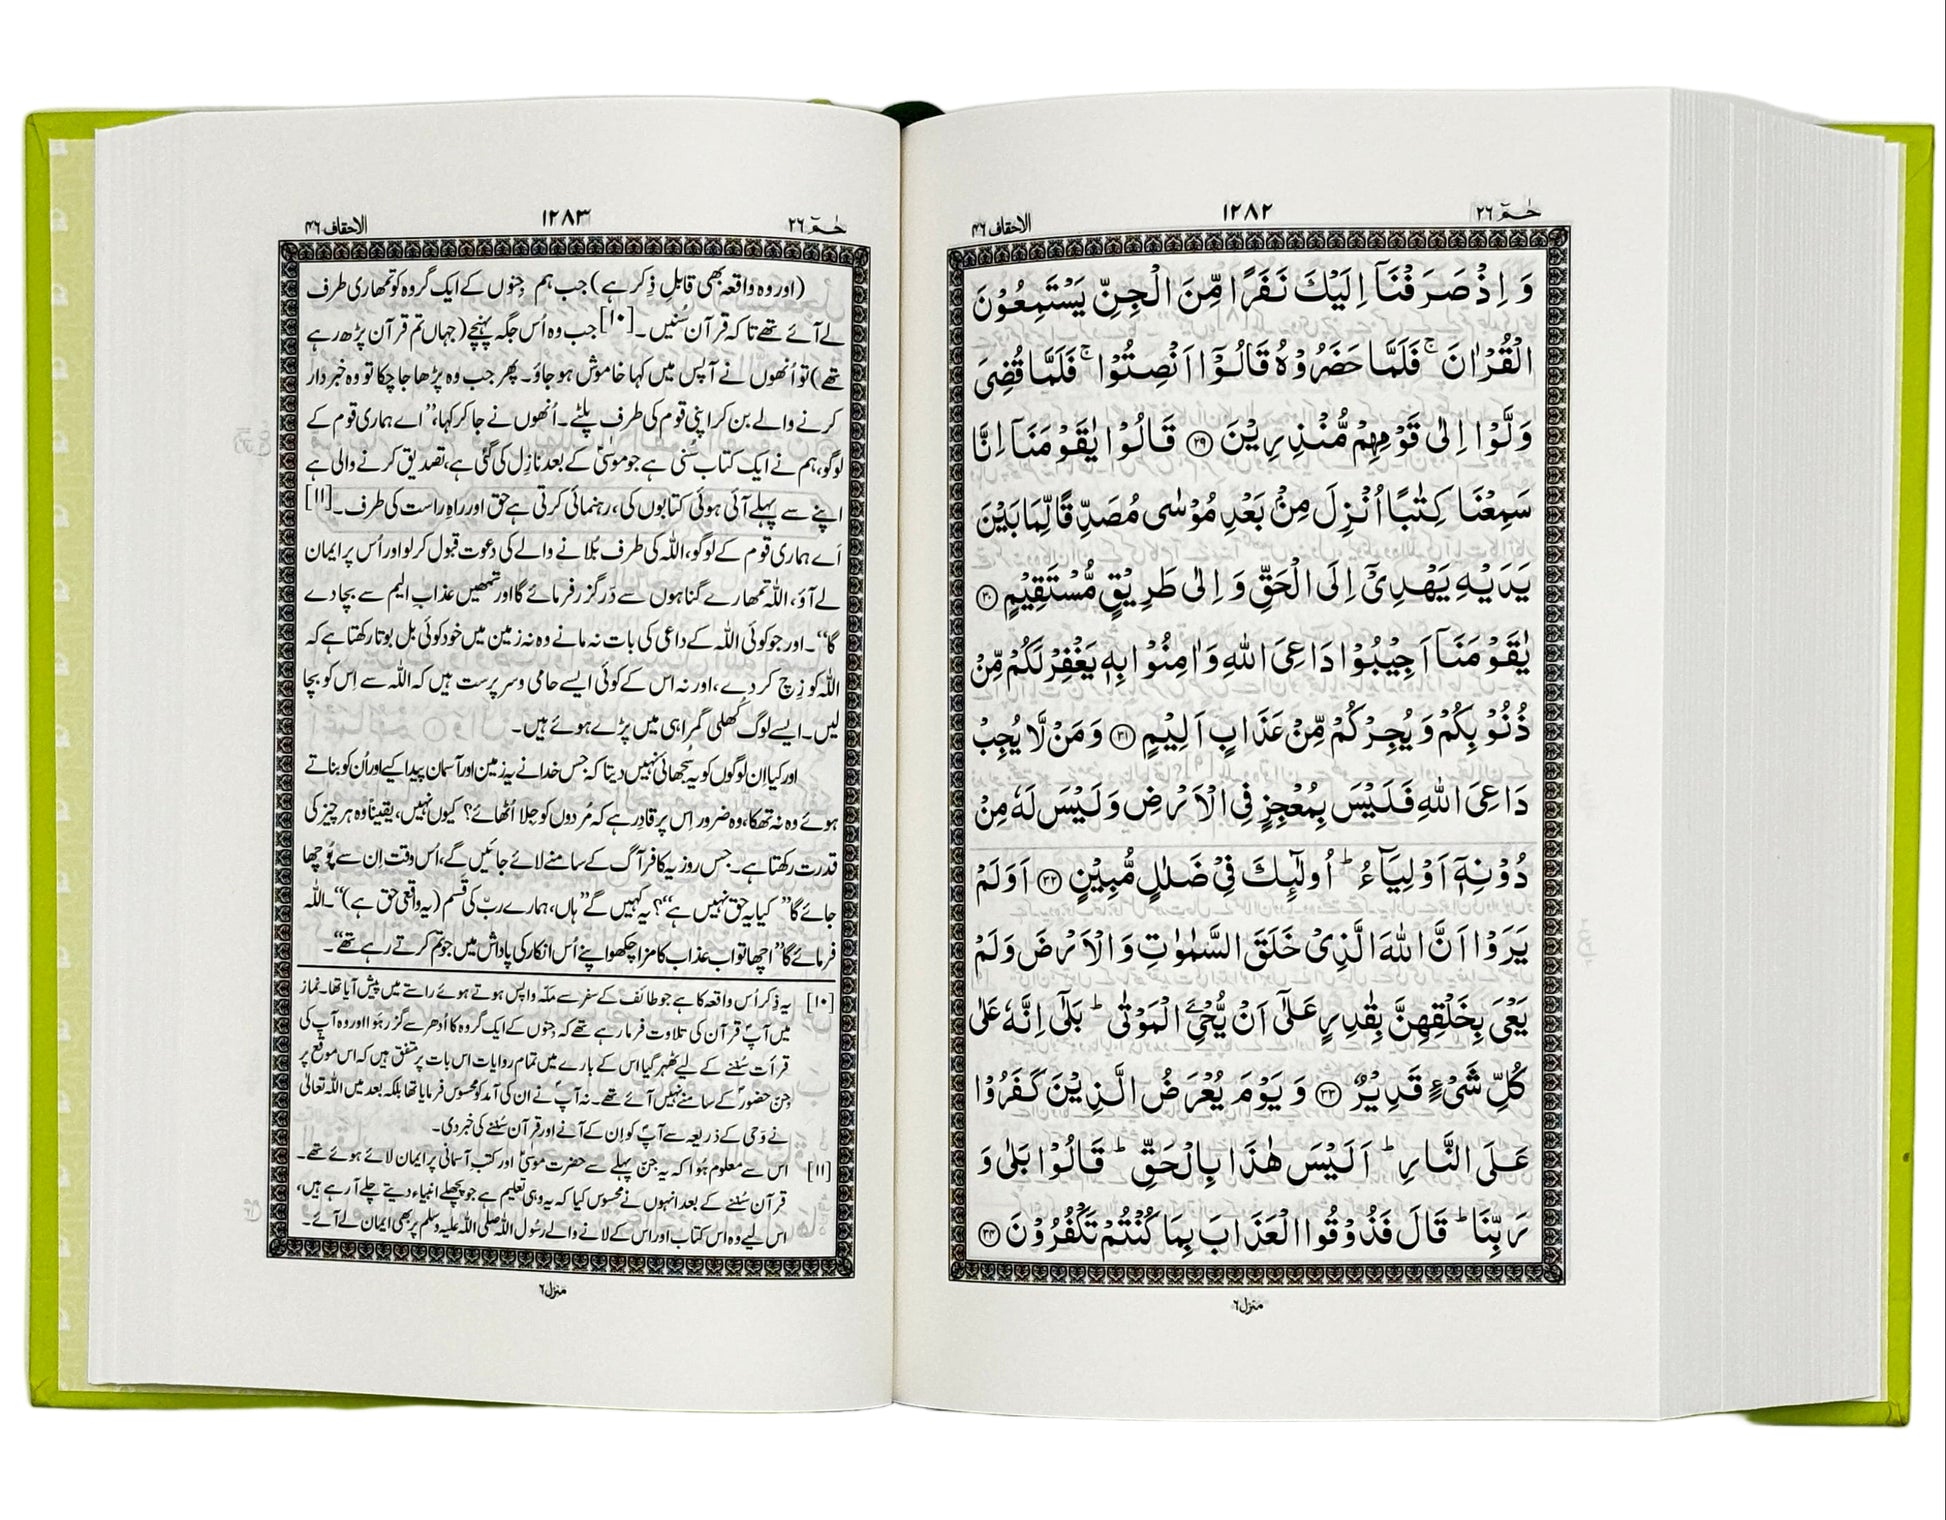 حٰـمٓ ٢٦
١٢٨٢
الاحقاف ۴۶
وَ اِذْ صَرَفْنَاۤ اِلَيْكَ نَفَرًا مِّنَ الْجِنِّ يَسْتَمِعُوْنَ
الْقُرْاٰنَ ۚ فَلَمَّا حَضَرُوْهُ قَالُوْۤا اَنْصِتُوْا ۚ فَلَمَّا قُضِىَ
وَلَّوْا اِلٰى قَوْمِهِمْ مُّنْذِرِيْنَ ﴿۲۹﴾ قَالُوْا يٰقَوْمَنَاۤ اِنَّا
سَمِعْنَا كِتٰبًا اُنْزِلَ مِنْۢ بَعْدِ مُوْسٰى مُصَدِّقًا لِّمَا بَيْنَ
يَدَيْهِ يَهْدِىْۤ اِلَى الْحَقِّ وَ اِلٰى طَرِيْقٍ مُّسْتَقِيْمٍ ﴿۳۰﴾
يٰقَوْمَنَاۤ اَجِيْبُوْا دَاعِىَ اللّٰهِ وَاٰمِنُوْا بِهٖ يَغْفِرْ لَكُمْ مِّنْ
ذُنُوْبِكُمْ وَ يُجِرْكُمْ مِّنْ عَذَابٍ اَلِيْمٍ ﴿۳۱﴾ وَ مَنْ لَّا يُجِبْ
دَاعِىَ اللّٰهِ فَلَيْسَ بِمُعْجِزٍ فِى الْاَرْضِ وَ لَيْسَ لَهٗ مِنْ
دُوْنِهٖۤ اَوْلِيَآءُ ؕ اُولٰٓئِكَ فِىْ ضَلٰلٍ مُّبِيْنٍ ﴿۳۲﴾ اَوَلَمْ
يَرَوْا اَنَّ اللّٰهَ الَّذِىْ خَلَقَ السَّمٰوٰتِ وَ الْاَرْضَ وَلَمْ
يَعْىَ بِخَلْقِهِنَّ بِقٰدِرٍ عَلٰۤى اَنْ يُّحْیِۦَ الْمَوْتٰى ؕ بَلٰۤى اِنَّهٗ عَلٰى
كُلِّ شَىْءٍ قَدِيْرٌ ﴿۳۳﴾ وَ يَوْمَ يُعْرَضُ الَّذِيْنَ كَفَرُوْا
عَلَى النَّارِ ؕ اَلَيْسَ هٰذَا بِالْحَقِّ ؕ قَالُوْا بَلٰى وَ
رَبِّنَا ؕ قَالَ فَذُوْقُوا الْعَذَابَ بِمَا كُنْتُمْ تَكْفُرُوْنَ ﴿۳۴﴾
منزل ۶
حٰـمٓ ٢٦
١٢٨٣
الاحقاف ۴۶
(اور وہ واقعہ بھی قابلِ ذِکر ہے) جب ہم جِنوں کے ایک گروہ کو تمھاری طرف
لے آئے تھے تاکہ قرآن سُنیں۔[۱۰] جب وہ اُس جگہ پہنچے (جہاں تم قرآن پڑھ رہے
تھے) تو اُنھوں نے آپس میں کہا خاموش ہو جاؤ۔ پھر جب وہ پڑھا جا چکا تو وہ خبردار
کرنے والے بن کر اپنی قوم کی طرف پلٹے۔ اُنھوں نے جا کر کہا، ’’اے ہماری قوم کے
لوگو، ہم نے ایک کتاب سُنی ہے جو موسیٰؑ کے بعد نازِل کی گئی ہے، تصدیق کرنے والی ہے
اپنے سے پہلے آئی ہوئی کتابوں کی، رہنمائی کرتی ہے حق اور راہِ راست کی طرف۔[۱۱]
اَے ہماری قوم کے لوگو، اللہ کی طرف بُلانے والے کی دعوت قبول کر لو اور اُس پر ایمان
لے آؤ، اللہ تمھارے گناہوں سے دَرگزر فرمائے گا اور تمھیں عذابِ الیم سے بچا دے
گا‘‘۔ اور جو کوئی اللہ کے داعی کی بات نہ مانے وہ نہ زمین میں خود کوئی بل بوتا رکھتا ہے کہ
اللہ کو زِچ کر دے، اور نہ اس کے کوئی ایسے حامی و سرپرست ہیں کہ اللہ سے اِس کو بچا
لیں۔ ایسے لوگ کُھلی گمراہی میں پڑے ہوئے ہیں۔
اور کیا اِن لوگوں کو یہ سُجھائی نہیں دیتا کہ جس خدا نے یہ زمین اور آسمان پیدا کیے اور اُن کو بناتے
ہوئے وہ نہ تھکا، وہ ضرور اِس پر قادِر ہے کہ مُردوں کو جِلا اُٹھائے؟ کیوں نہیں، یقیناً وہ ہر چیز کی
قدرت رکھتا ہے۔ جس روز یہ کافر آگ کے سامنے لائے جائیں گے، اُس وقت اِن سے پُوچھا
جائے گا ’’کیا یہ حق نہیں ہے‘‘؟ یہ کہیں گے ’’ہاں، ہمارے ربّ کی قَسم (یہ واقعی حق ہے)‘‘۔ اللہ
فرمائے گا ’’اچھا تو اب عذاب کا مزا چکھو اپنے اُس انکار کی پاداش میں جو تم کرتے رہے تھے‘‘۔
[۱۰] یہ ذِکر اُس واقعہ کا ہے جو طائف کے سفر سے مکّہ واپس ہوتے ہوئے راستے میں پیش آیا تھا۔ نماز
میں آپؐ قرآن کی تلاوت فرما رہے تھے کہ جِنوں کے ایک گروہ کا اُدھر سے گزر ہُوا اور وہ آپ کی
قرأت سُننے کے لیے ٹھہر گیا اس کے بارے میں تمام روایات اس بات پر متفق ہیں کہ اس موقع پر
جِن حضورؐ کے سامنے نہیں آئے تھے۔ نہ آپؐ نے ان کی آمد کو محسوس فرمایا تھا بلکہ بعد میں اللہ تعالیٰ
نے وَحی کے ذریعہ سے آپؐ کو اِن کے آنے اور قرآن سُننے کی خبر دی۔
[۱۱] اس سے معلوم ہُوا کہ یہ جن پہلے سے حضرت موسیٰؑ اور کتبِ آسمانی پر ایمان لائے ہوئے تھے۔
قرآن سُننے کے بعد انہوں نے محسوس کیا کہ یہ وہی تعلیم ہے جو پچھلے انبیاء دیتے چلے آ رہے ہیں،
اس لیے وہ اس کتاب اور اس کے لانے والے رسُول اللہ صلی اللہ علیہ وسلم پر بھی ایمان لے آئے۔
منزل ۶